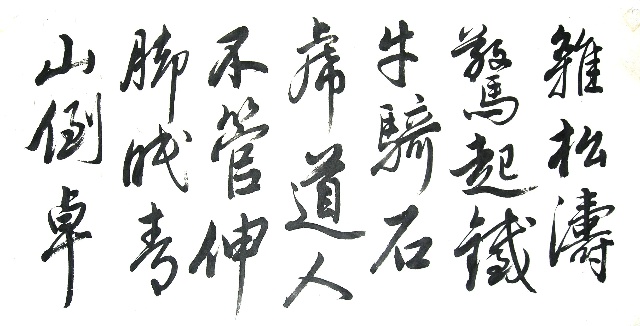 雜松濤
驚起鐵
牛騎石
虎道人
不管伸
脚眠青
山倒卓